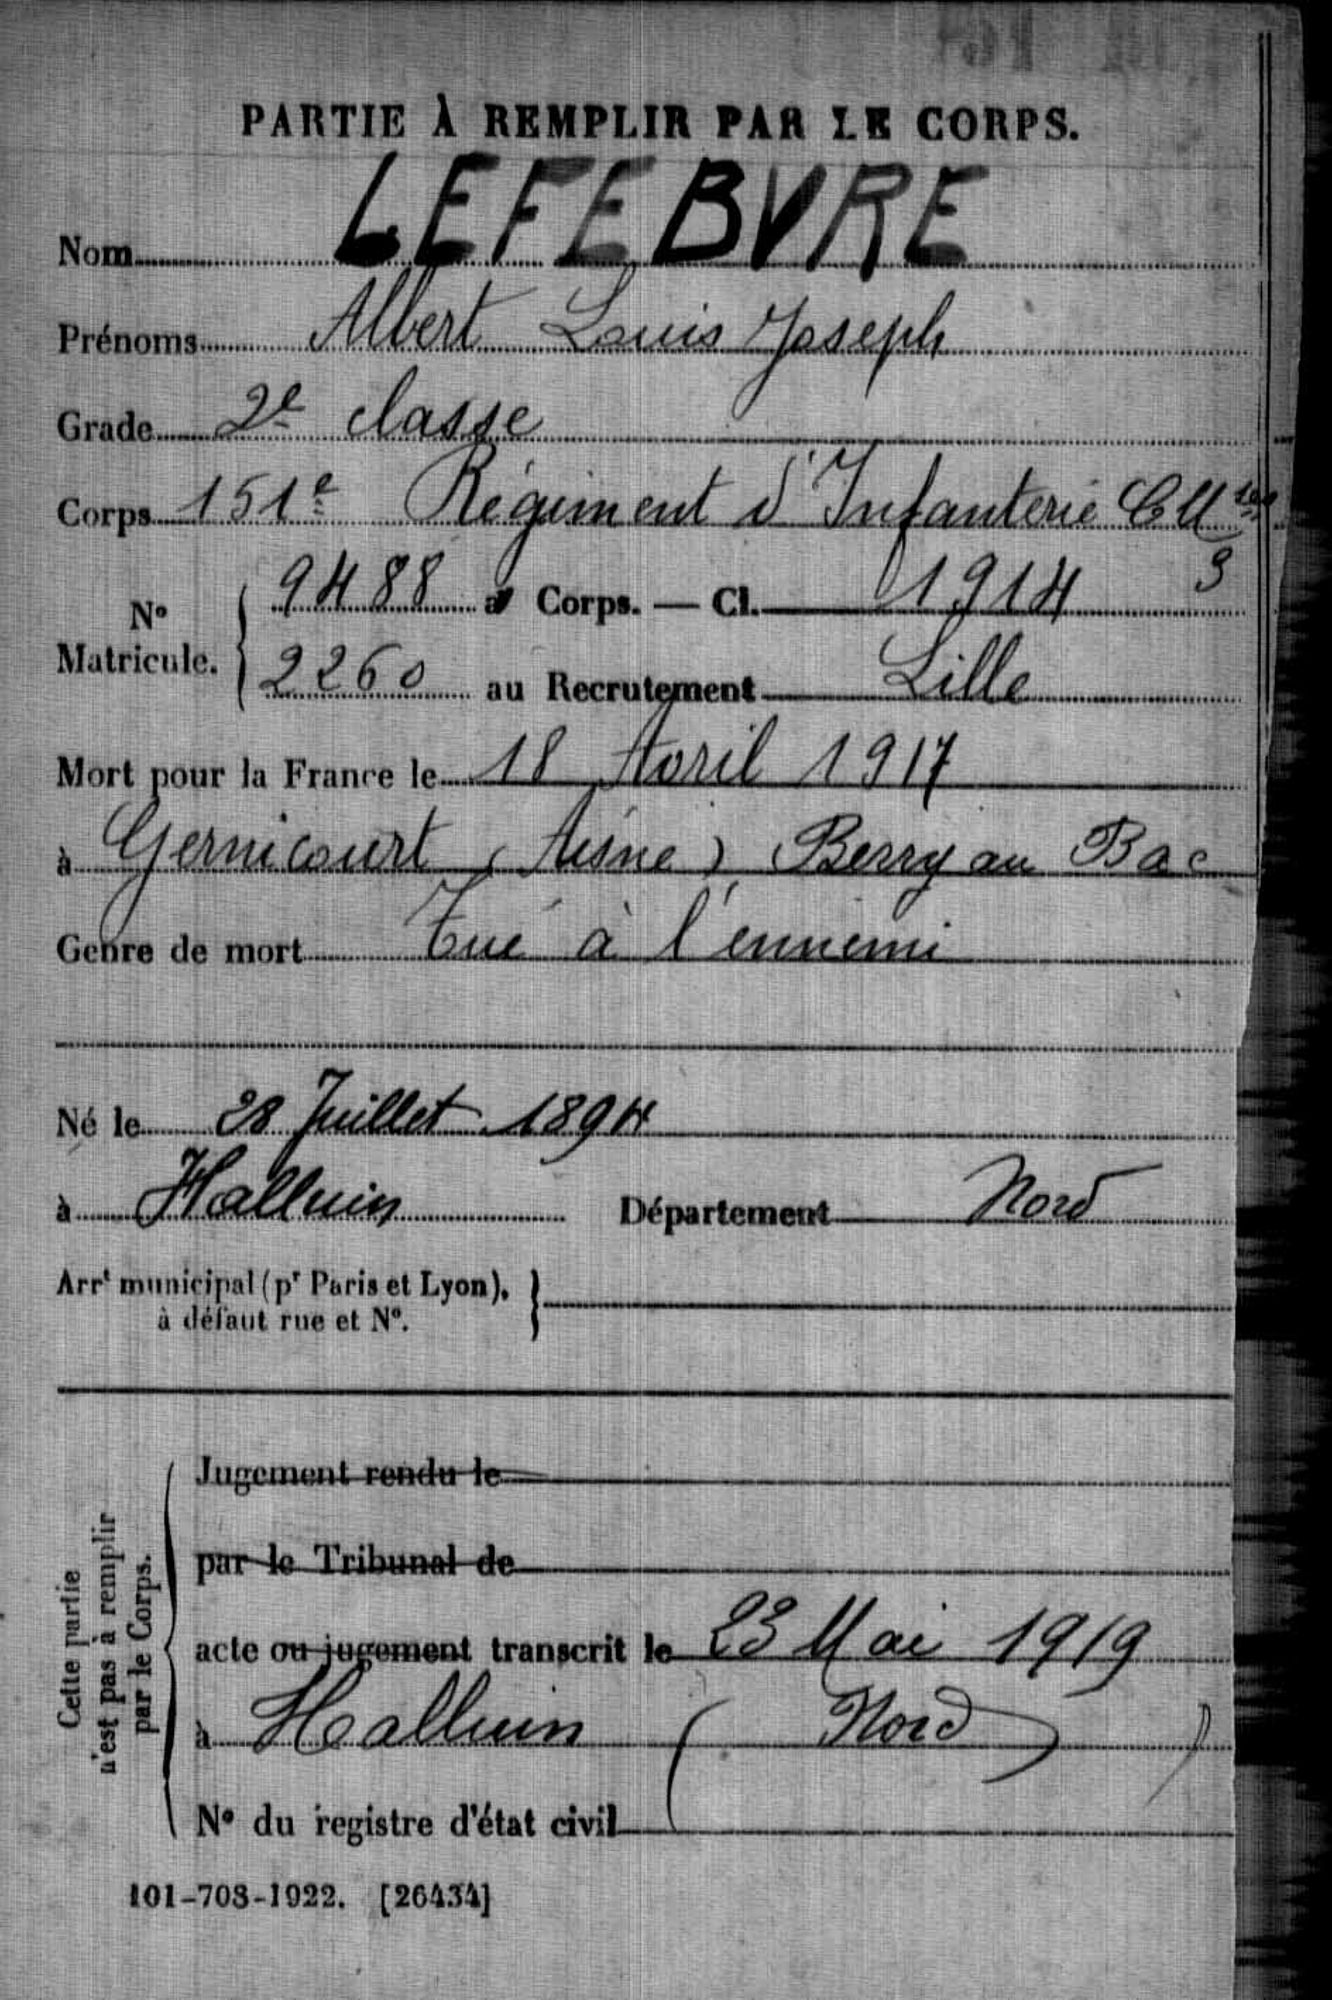 PARTIE À REMPLIR PAR LE CORPS.
Nom LEFEBVRE
Prénoms Albert Louis Joseph
Grade 2e classe
Corps 151e Régiment d'Infanterie
N° Matricule. { 9488 au Corps. — Cl. 1914
2260 au Recrutement Lille
Mort pour la France le 18 Avril 1917
à Gernicourt (Aisne) Berry au Bac
Genre de mort Tué à l'ennemi
Né le 28 Juillet 1894
à Halluin Département Nord
Arrt municipal (pr Paris et Lyon), }
à défaut rue et N°.
Cette partie
n'est pas à remplir
par le Corps.
Jugement rendu le
par le Tribunal de
acte ou jugement transcrit le 23 Mai 1919
à Halluin (Nord)
N° du registre d'état civil
101-708-1922. [26434]